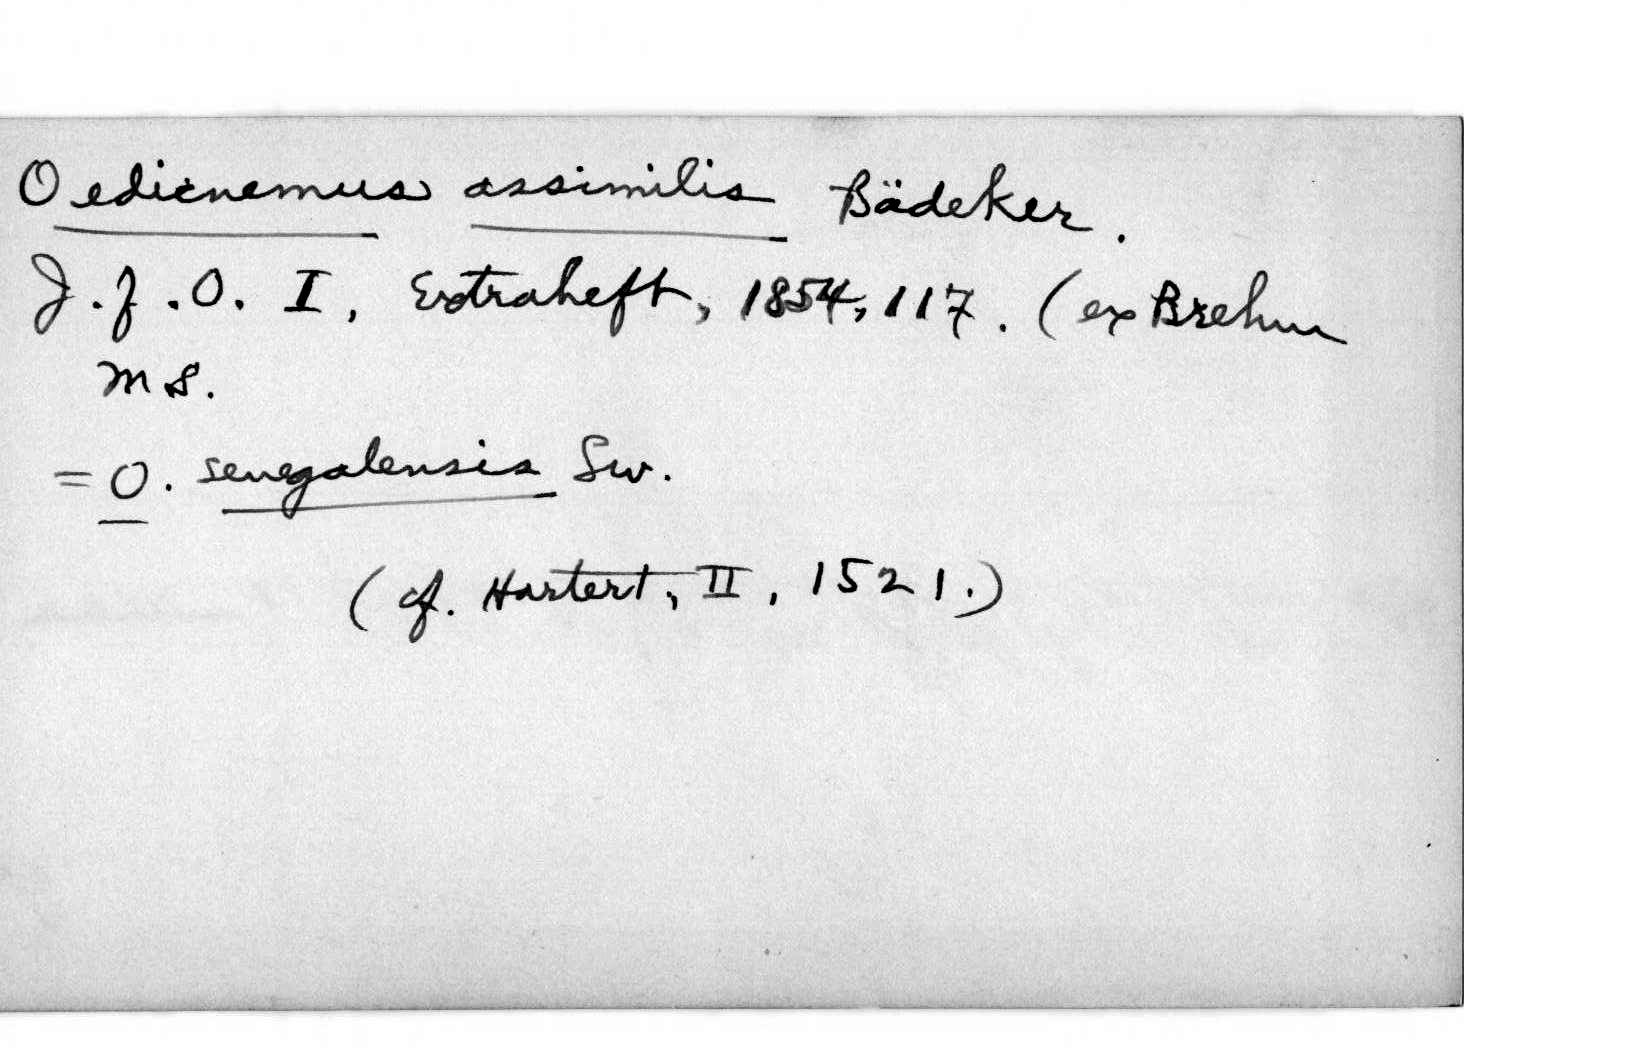 Oedicnemus assimilis Bädeker.
J.f.O. I, Extraheft, 1854, 117. (ex Brehm
MS.
= O. senegalensis Sw.
(cf. Hartert, II, 1521.)